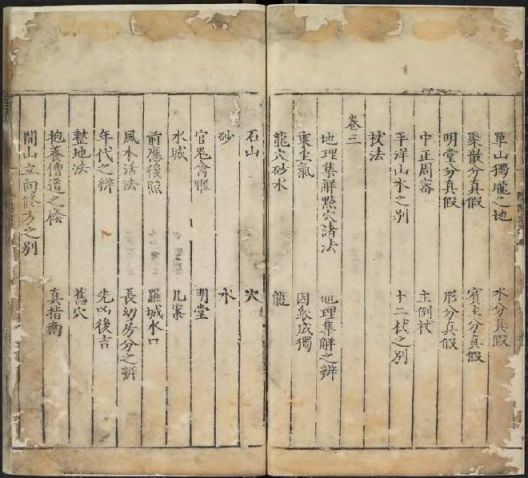 單山獨壠之地　水分真假
聚散分真假　賓主分真假
明堂分真假　形分真假
中正周密　主倒杖
平洋山水之別　十二杖之別
杖法
卷三
地理集解點穴諸法　地理集解之辨
乘生氣　因衆成獨
龍穴砂水　龍
石山　穴
砂　水
官鬼禽曜　明堂
水城　几案
前應後照　羅城水口
風水活法　長幼房分之辨
年代之辨　先凶後吉
整地法　舊穴
抱養僧道之　真指南
開山立向修方之別